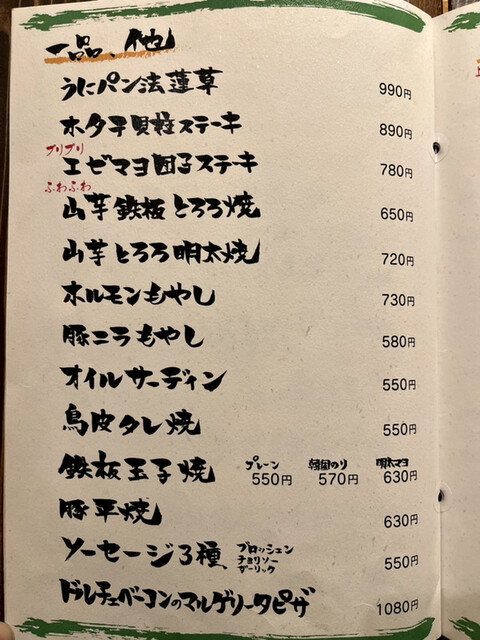 一品、他
うにパン法蓮草 990円
ホタテ貝柱ステーキ 890円
プリプリ
エビマヨ団子ステーキ 780円
ふわふわ
山芋鉄板とろろ焼 650円
山芋とろろ明太焼 720円
ホルモンもやし 730円
豚ニラもやし 580円
オイルサーディン 550円
鳥皮タレ焼 550円
プレーン 韓国のり 明太マヨ
鉄板玉子焼 550円 570円 630円
豚平焼 630円
ソーセージ3種 ブロッシェン チョリソー ガーリック 550円
ドルチェベーコンのマルゲリータピザ 1080円